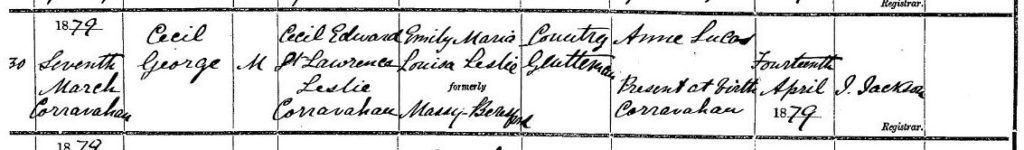 Registrar.
1879
Cecil
Cecil Edward
Emily Maria
Country
Anne Lucas
30
Seventh
George
M
St Lawrence
Louisa Leslie
Gentleman
Fourteenth
March
Leslie
formerly
Present at birth
April
J. Jackson
Corravahan
Corravahan
Massy-Beresford
Corravahan
1879
Registrar.
1879